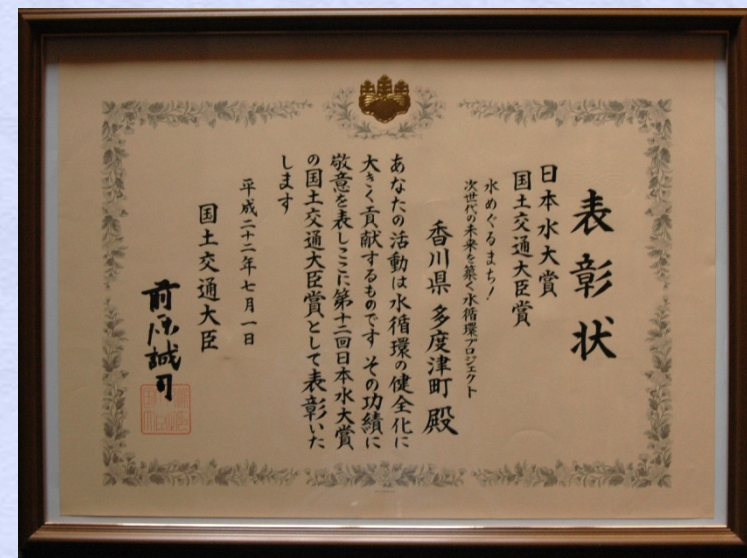 表彰状
日本水大賞
国土交通大臣賞
水めぐるまち！
次世代の未来を築く水循環プロジェクト
香川県 多度津町 殿
あなたの活動は水循環の健全化に
大きく貢献するものです その功績に
敬意を表しここに第十二回日本水大賞
の国土交通大臣賞として表彰いた
します
平成二十二年七月一日
国土交通大臣
前原誠司